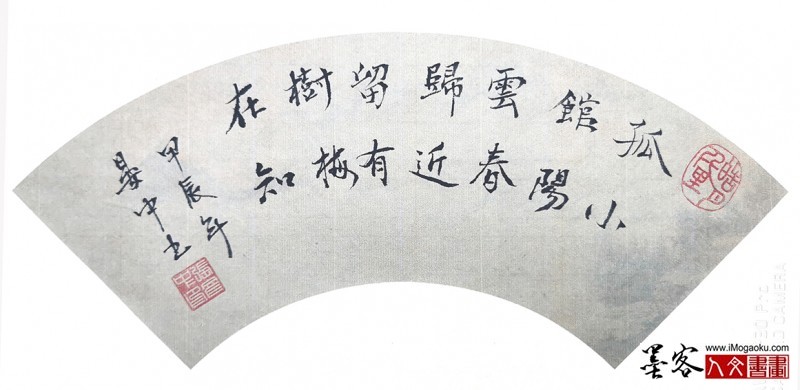 孤館雲歸留樹在
小陽春近有梅知
甲辰年
中书
www.iMogaoku.com
墨客人文書畫
CAMERA